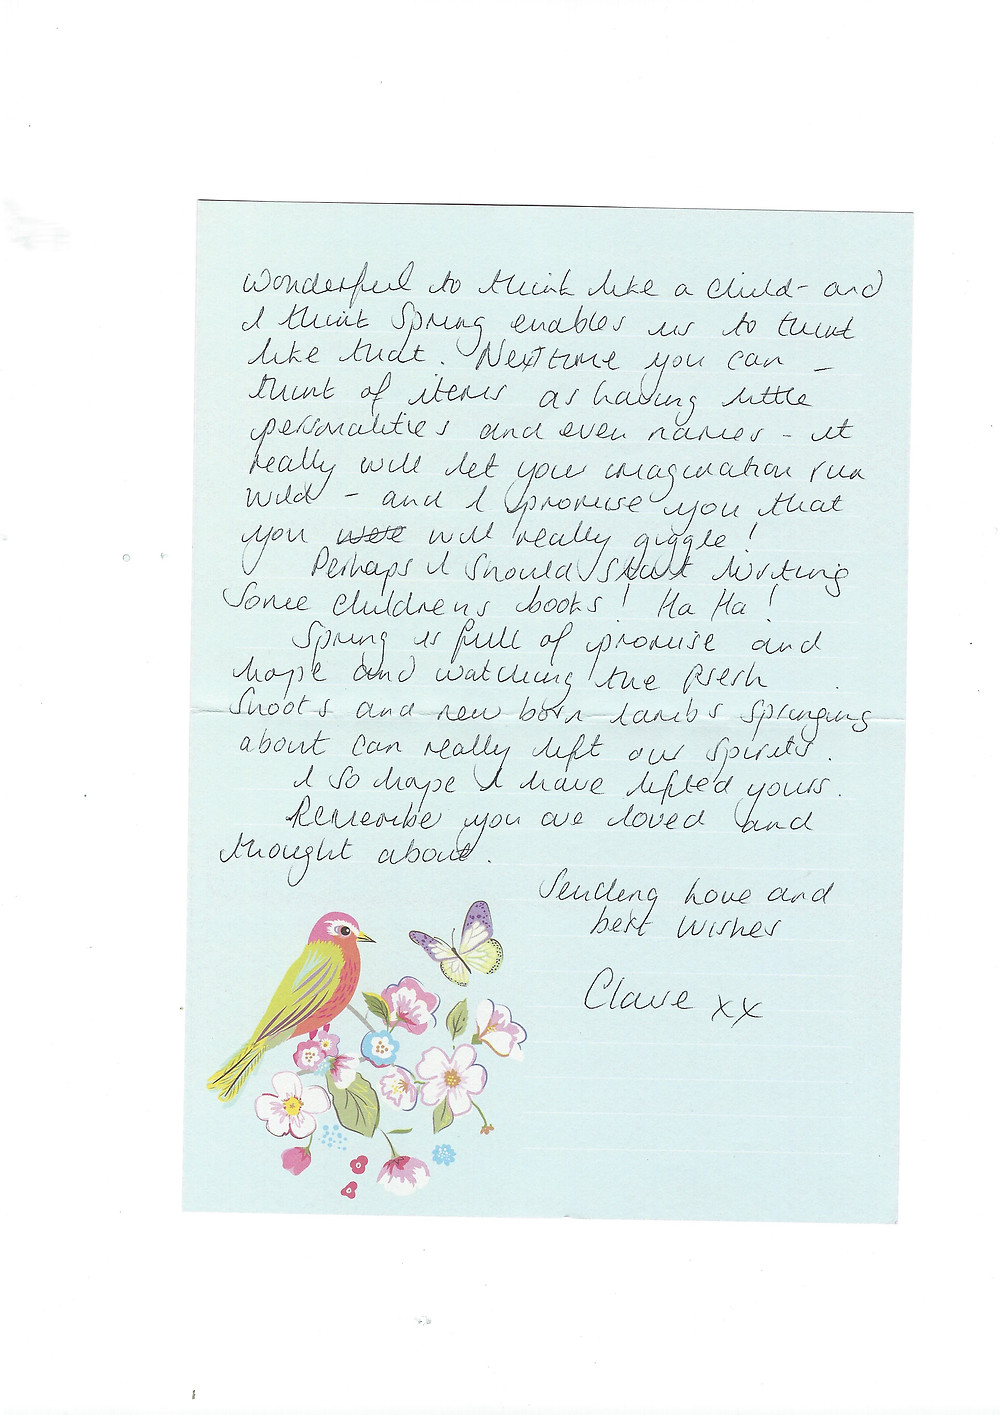 wonderful to think like a child - and
I think Spring enables us to think
like that. Next time you can -
think of items as having little
personalities and even names - it
really will let your imagination run
wild - and I promise you that
you were will really giggle!
Perhaps I should start writing
some childrens books! Ha Ha!
Spring is full of promise and
hope and watching the fresh
shoots and new born lambs springing
about can really lift our spirits.
I so hope I have lifted yours.
Remember you are loved and
thought about.
Sending love and
best wishes
Claire xx